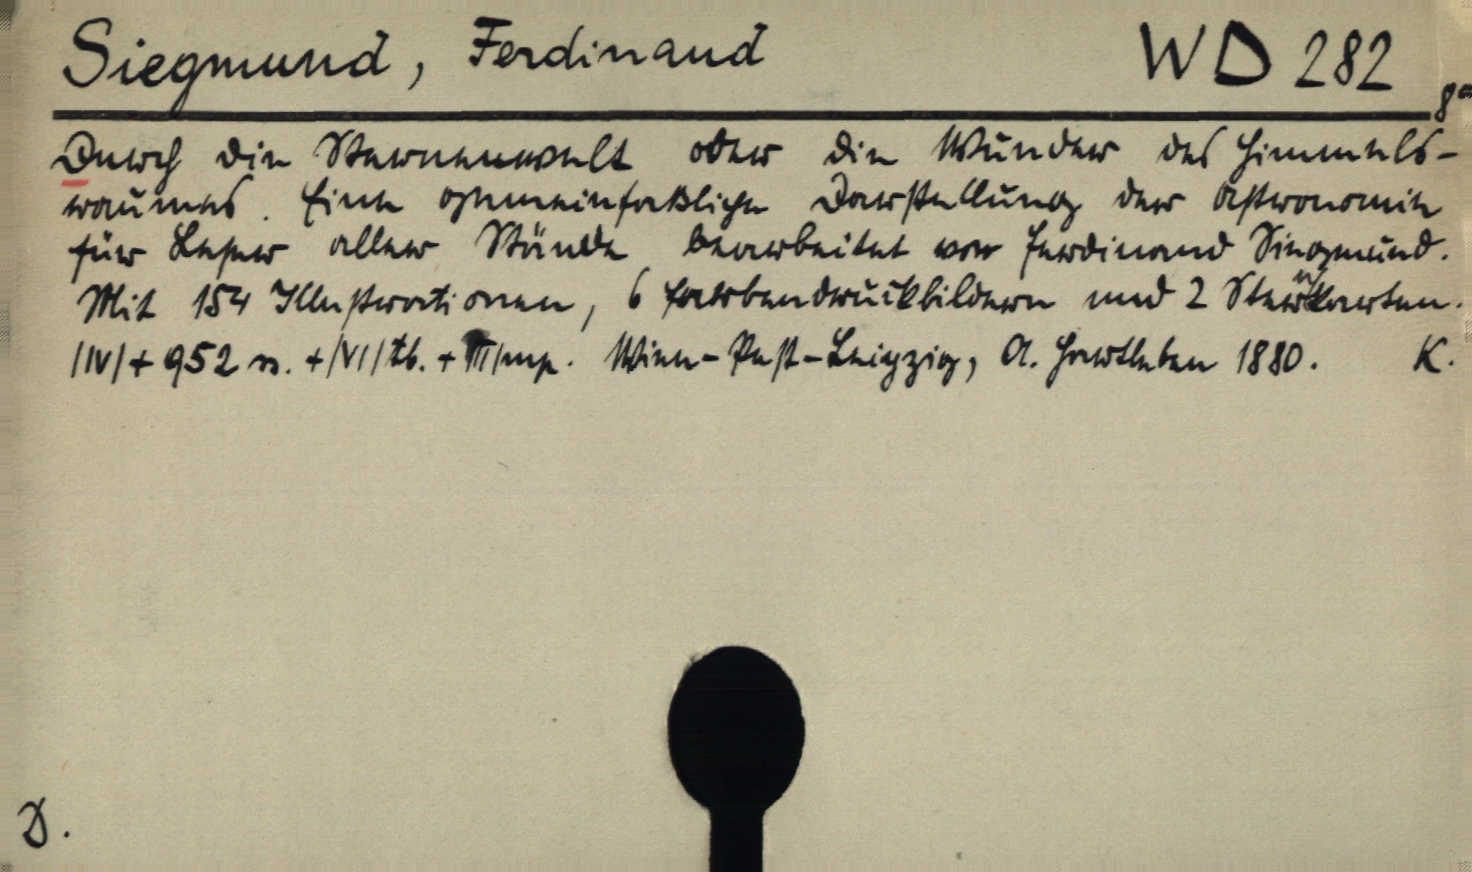 Siegmund, Ferdinand WD 282
8°
Durch die Sternenwelt oder die Wunder des Himmels-
raumes. Eine gemeinfaßliche Darstellung der Astronomie
für Leser aller Stände bearbeitet von Ferdinand Siegmund.
Mit 154 Illustrationen, 6 Farbendruckbildern und 2 Sternkarten.
/IV/ + 952 s. + /VI/ tb. + /II/ mp. Wien-Pest-Leipzig, A. Hartleben 1880. K.
D.